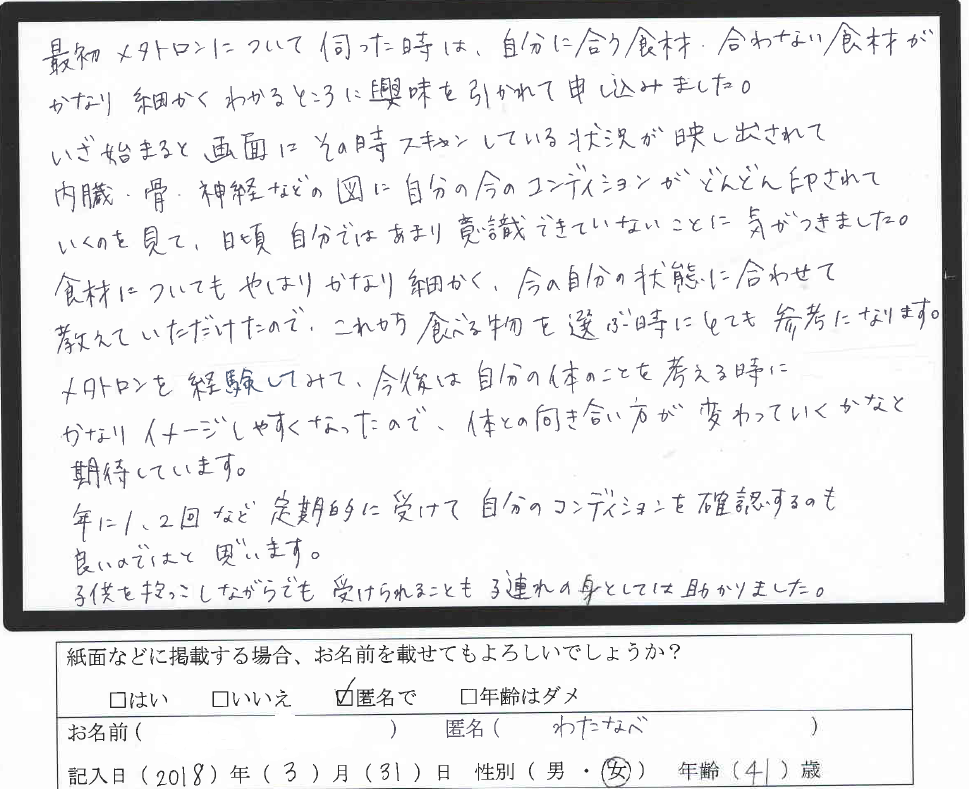 最初メタトロンについて伺った時は、自分に合う食材・合わない食材が
かなり細かくわかるところに興味を引かれて申し込みました。
いざ始まると画面にその時スキャンしている状況が映し出されて
内臓・骨・神経などの図に自分の今のコンディションがどんどん印されて
いくのを見て、日頃自分ではあまり意識できていないことに気がつきました。
食材についてもやはりかなり細かく、今の自分の状態に合わせて
教えていただけたので、これから食べる物を選ぶ時にとても参考になります。
メタトロンを経験してみて、今後は自分の体のことを考える時に
かなりイメージしやすくなったので、体との向き合い方が変わっていくかなと
期待しています。
年に1、2回など定期的に受けて自分のコンディションを確認するのも
良いのではと思います。
子供を抱っこしながらでも受けられることも子連れの身としては助かりました。
紙面などに掲載する場合、お名前を載せてもよろしいでしょうか?
□はい □いいえ ☑匿名で □年齢はダメ
お名前( ) 匿名( わたなべ )
記入日(2018)年(3)月(31)日 性別(男・女) 年齢(41)歳